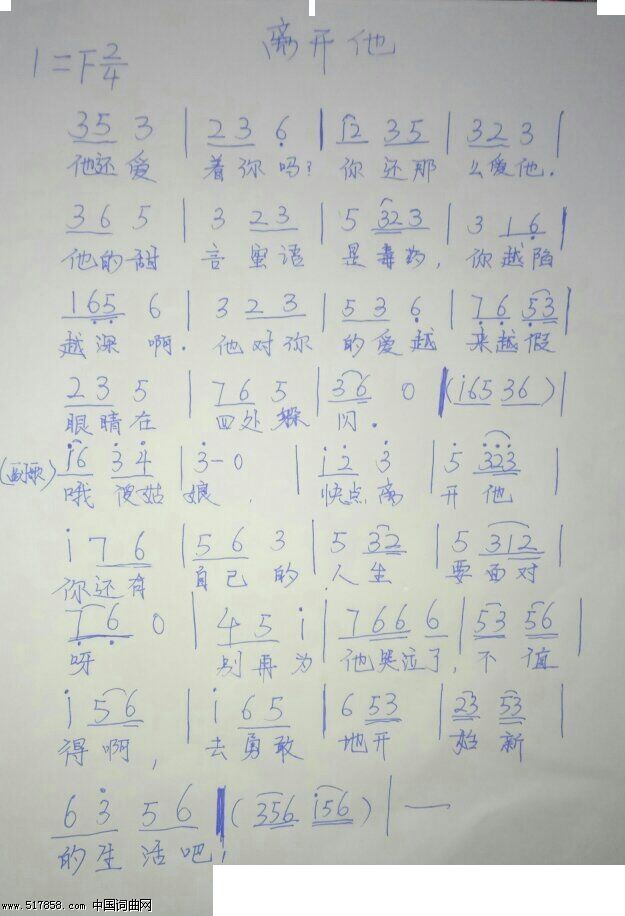 离开他
1=F 2/4
35 3 | 2 3 6 | i2 35 | 32 3 |
他还爱 着你吗? 你还那 么爱他.
3 6 5 | 3 2 3 | 5 323 | 3 1 6 |
他的甜 言蜜语 是毒药, 你越陷
165 6 | 3 2 3 | 5 3 6 | 7 6 53 |
越深啊. 他对你 的爱越 来越假
2 3 5 | 7 6 5 | 36 0 | (i65 36) |
眼睛在 四处躲 闪.
(副歌) i6 3 4 | 3 - 0 | i 2 3 | 5 323 |
哦傻姑 娘, 快点离 开他
i 7 6 | 5 6 3 | 5 32 | 5 312 |
你还有 自己的 人生 要面对
7 6 0 | 4 5 i | 766 6 | 53 56 |
呀 别再为 他哭泣了, 不值
i 56 | i 6 5 | 6 53 | 23 53 |
得啊, 去勇敢 地开 始新
6 3 5 6 | (356 i56) | —
的生活吧,
www.517858.com 中国词曲网